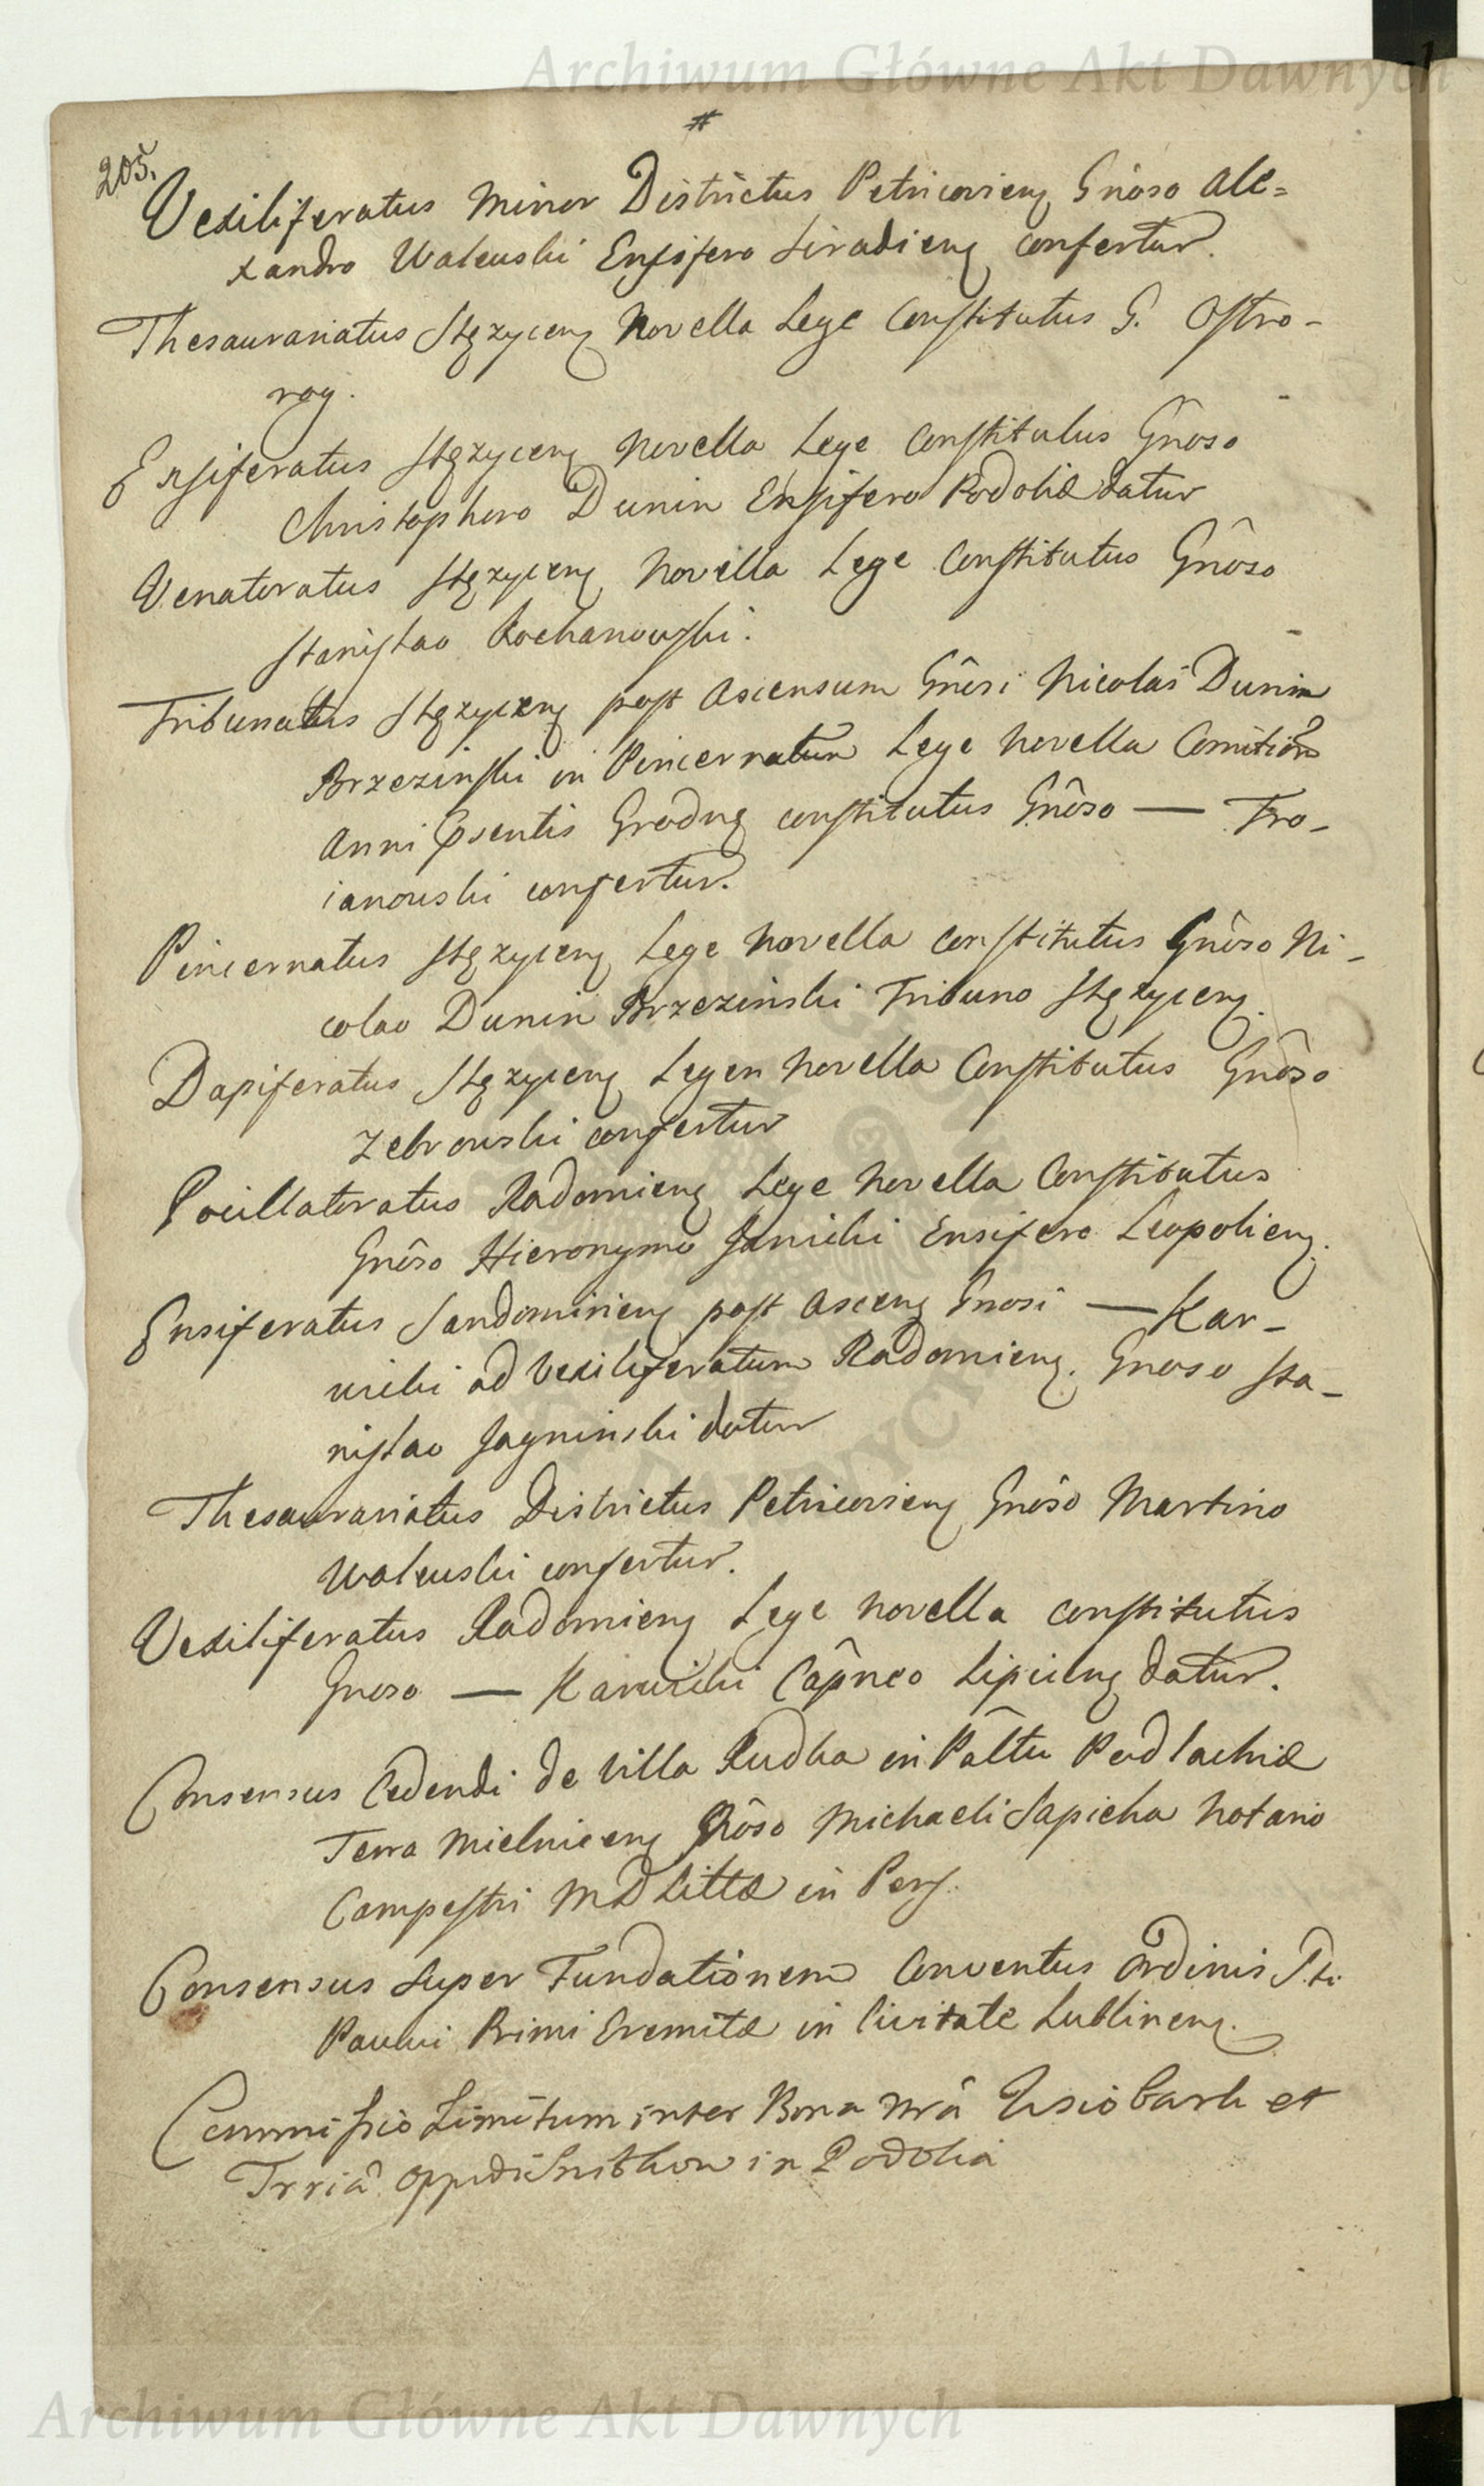 Archiwum Główne Akt Dawnych
#
205.
Vexiliferatus Minor Districtus Petricovieng Gnôso Ale=
xandro Walewski Ensifero Siradieng confertur.
Thesaurariatus Stężyceng Novella Lege Constitutus G. Ostro-
rog.
Ensiferatus Stężyceng Novella Lege Constitutus Gnôso
Christophoro Dunin Ensifero Podoliæ datur
Venatoratus Stężyceng Novella Lege Constitutus Gnôso
Stanislao Kochanowski.
Tribunatus Stężyceng post Ascensum Gnôsi Nicolai Dunin
Brzezinski in Pincernatum Lege Novella Comitiorũ
Anni Psentis Grodng constitutus Gnôso — Tro-
ianowski confertur.
Pincernatus Stężyceng Lege Novella Constitutus Gnôso Ni-
colao Dunin Brzezinski Tribuno Stężyceng.
Dapiferatus Stężyceng Legen Novella Constitutus Gnôso
Zebrowski confertur
Pocillatoratus Radomieng Lege Novella Constitutus
Gnôso Hieronymo Janicki Ensifero Leopolieng.
Ensiferatus Sandomirieng post Asceng Gnosi — Kar-
wicki ad Vexiliferatum Radomieng. Gnoso Sta-
nislao Jagninski datur
Thesaurariatus Districtus Petricovieng Gnôso Martino
Walewski confertur.
Vexiliferatus Radomieng Lege Novella constitutus
Gnoso — Karwicki Capneo Lipcieng datur.
Consensus Cedendi de Villa Rudka in Paltu Podlachiæ
Terra Mielniceng Gnôso Michaeli Sapieha Notario
Campestri MD Littæ in Pers.
Consensus Super Fundationem Conventus Ordinis S.ti
Pauli Primi Eremitæ in Civitate Lublineng.
Commissio Limitum inter Bona Nrâ et
Trriâ oppidi in Podolia
Archiwum Główne Akt Dawnych